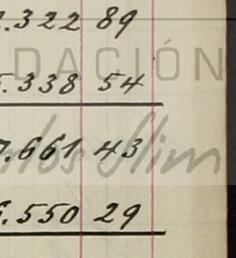 .322 89
DACIÓN
.338 54
.661 43
los Slim
.550 29